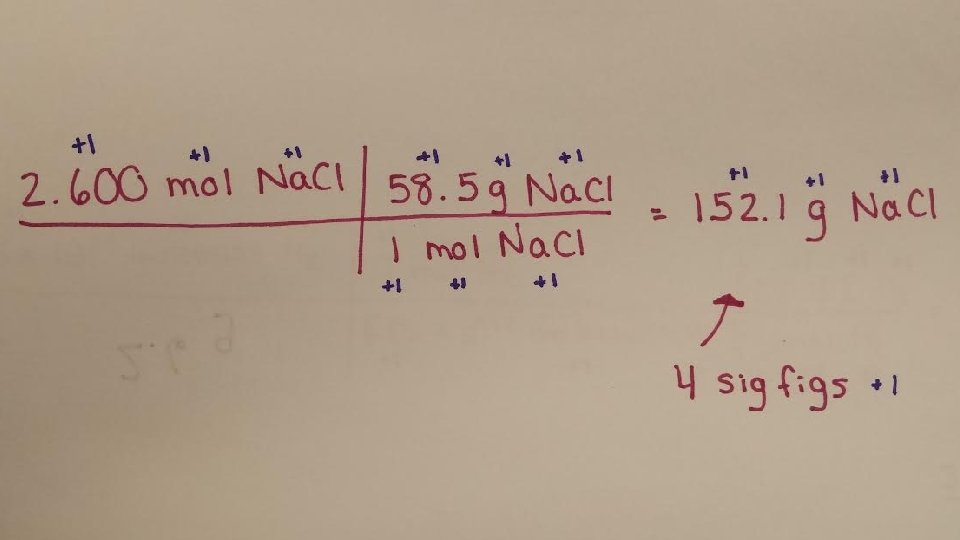 +1 +1 +1 +1 +1 +1 +1 +1 +1
2.600 mol NaCl | 58.5g NaCl = 152.1 g NaCl
1 mol NaCl
+1 +1 +1
4 sig figs +1